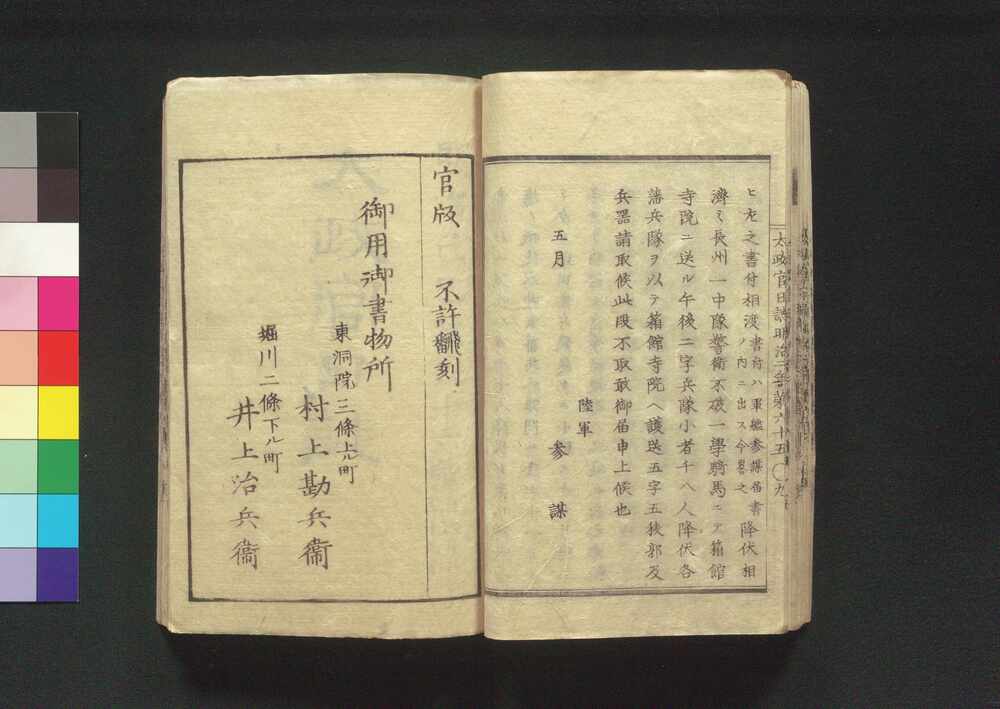 太政官日誌明治二年第六十五〇九
ヒ左之書付相渡書付ハ軍艦参謀届書ノ内ニ出ス今畧之降伏相
濟ミ長州一中隊警衛不破一學騎馬ニテ箱館
寺院ニ送ル午後二字兵隊小者千八人降伏各
藩兵隊ヲ以テ箱館寺院ヘ護送五字五稜郭及
兵器請取候此段不取敢御届申上候也
五月
陸軍
参謀
官版
不許翻刻
御用御書物所
東洞院三條上ル町
村上勘兵衞
堀川二條下ル町
井上治兵衞